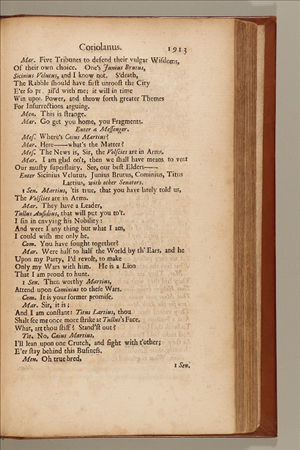 Coriolanus. 1913
Mar. Five Tribunes to defend their vulgar Wisdoms,
Of their own choice. One's Junius Brutus,
Sicinius Velutus, and I know not. S'death,
The Rabble should have first unroost the City
E'er so pre ail'd with me; it will in time
Win upon Power, and throw forth greater Themes
For Insurrections arguing.
Men. This is strange.
Mar. Go get you home, you Fragments.
Enter a Messenger.
Mes. Where's Caius Martius?
Mar. Here——what's the Matter?
Mes. The News is, Sir, the Volscies are in Arms.
Mar. I am glad on't, then we shall have means to vent
Our musty superfluity. See, our best Elders——
Enter Sicinius Velutus, Junius Brutus, Cominius, Titus
Lartius, with other Senators.
1 Sen. Martius, 'tis true, that you have lately told us,
The Volscies are in Arms.
Mar. They have a Leader,
Tullus Aufidius, that will put you to't.
I sin in envying his Nobility:
And were I any thing but what I am,
I could wish me only he.
Com. You have fought together?
Mar. Were half to half the World by th' Ears, and he
Upon my Party, I'd revolt, to make
Only my Wars with him. He is a Lion
That I am proud to hunt.
1 Sen. Then worthy Martius,
Attend upon Cominius to these Wars.
Com. It is your former promise.
Mar. Sir, it is;
And I am constant: Titus Lartius, thou
Shalt see me once more strike at Tullus's Face.
What, art thou stiff? Stand'st out?
Tit. No, Caius Martius,
I'll lean upon one Crutch, and fight with t'other;
E'er stay behind this Business.
Men. Oh true bred,
1 Sen.